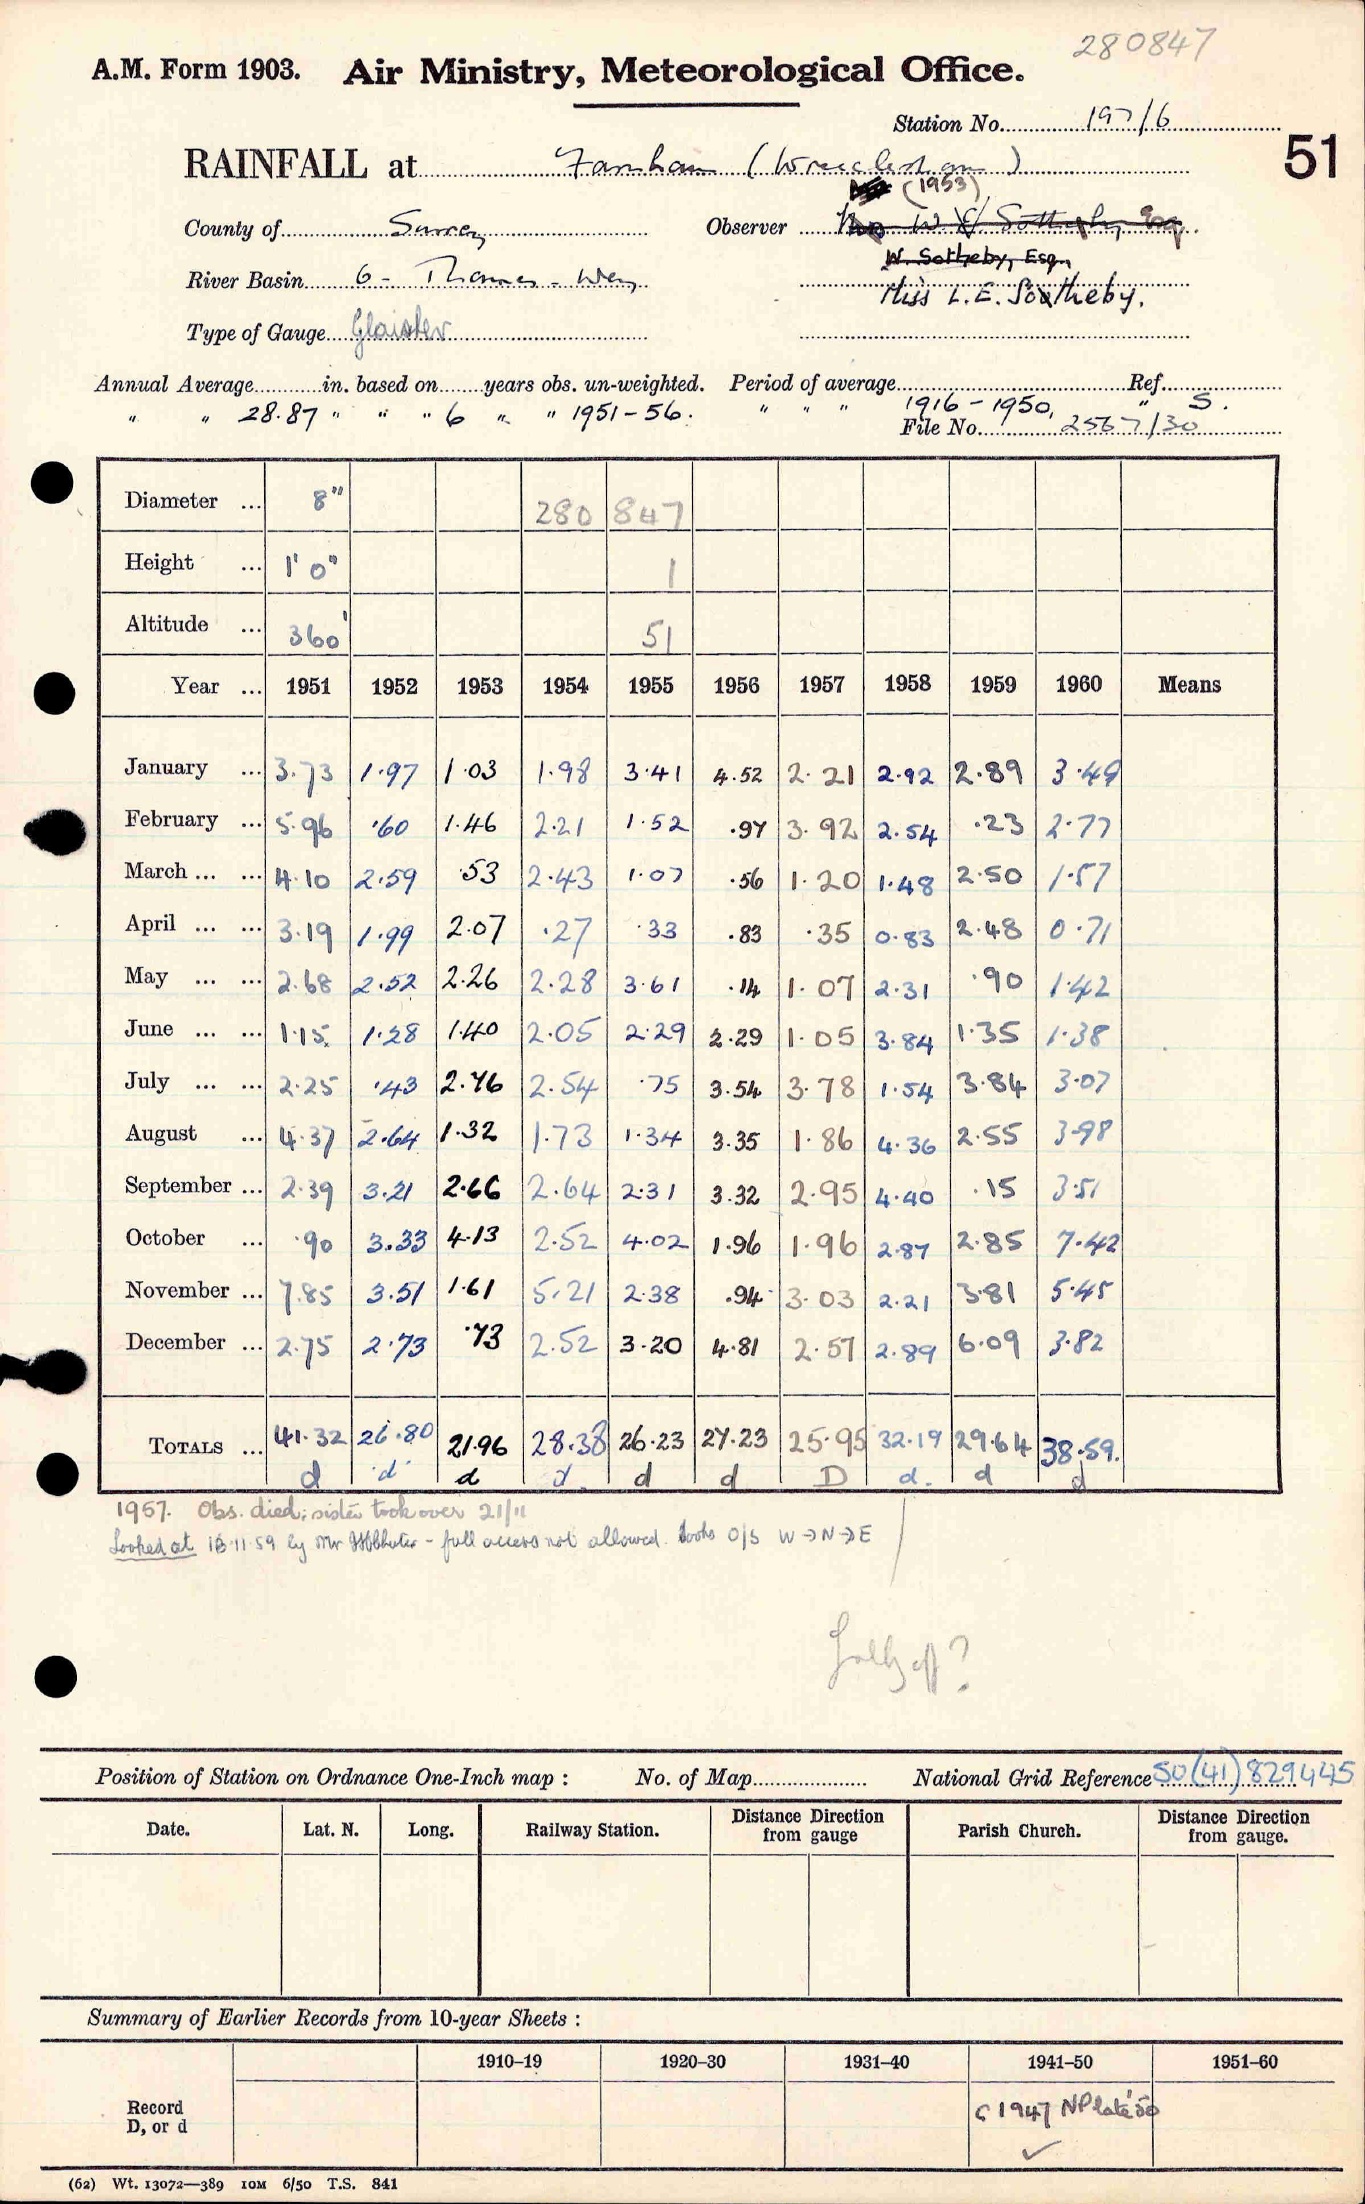 280847
A.M. Form 1903. Air Ministry, Meteorological Office.
Station No. 197/6
51
RAINFALL at Farnham (Wrecclesham)
(1953)
County of Surrey Observer W Sotheby Esq.
W. Sotheby, Esq.,
River Basin 6 - Thames - Wey
Miss L. E. Sotheby.
Type of Gauge Glaisher
Annual Average in. based on years obs. un-weighted. Period of average Ref.
" " 28.87 " " " 6 " " 1951-56. " " " 1916-1950, " S.
File No. 2567/30
Diameter ... 8" 280 847
Height ... 1' 0" 1
Altitude ... 360' 51
Year ... 1951 1952 1953 1954 1955 1956 1957 1958 1959 1960 Means
January ... 3.73 1.97 1.03 1.98 3.41 4.52 2.21 2.92 2.89 3.49
February ... 5.96 .60 1.46 2.21 1.52 .97 3.92 2.54 .23 2.77
March ... ... 4.10 2.59 .53 2.43 1.07 .56 1.20 1.48 2.50 1.57
April ... ... 3.19 1.99 2.07 .27 .33 .83 .35 0.83 2.48 0.71
May ... ... 2.68 2.52 2.26 2.28 3.61 .14 1.07 2.31 .90 1.42
June ... ... 1.15 1.28 1.40 2.05 2.29 2.29 1.05 3.84 1.35 1.38
July ... ... 2.25 .43 2.76 2.54 .75 3.54 3.78 1.54 3.84 3.07
August ... 4.37 2.64 1.32 1.73 1.34 3.35 1.86 4.36 2.55 3.98
September ... 2.39 3.21 2.66 2.64 2.31 3.32 2.95 4.40 .15 3.51
October ... .90 3.33 4.13 2.52 4.02 1.96 1.96 2.87 2.85 7.42
November ... 7.85 3.51 1.61 5.21 2.38 .94 3.03 2.21 3.81 5.45
December ... 2.75 2.73 .73 2.52 3.20 4.81 2.57 2.89 6.09 3.82
TOTALS ... 41.32 26.80 21.96 28.38 26.23 27.23 25.95 32.19 29.64 38.59.
d d d d d d D d. d d
1957. Obs. died; sister took over 21/11
Looked at 18.11.59 by Mr - full access not allowed. Looks O/S W→N→E
off?
Position of Station on Ordnance One-Inch map : No. of Map National Grid Reference SU(41)829445
Date. Lat. N. Long. Railway Station. Distance Direction from gauge Parish Church. Distance Direction from gauge.
Summary of Earlier Records from 10-year Sheets :
1910–19 1920–30 1931–40 1941–50 1951–60
Record D, or d c 1947 NP late '50
✓
(62) Wt. 13072—389 10M 6/50 T.S. 841